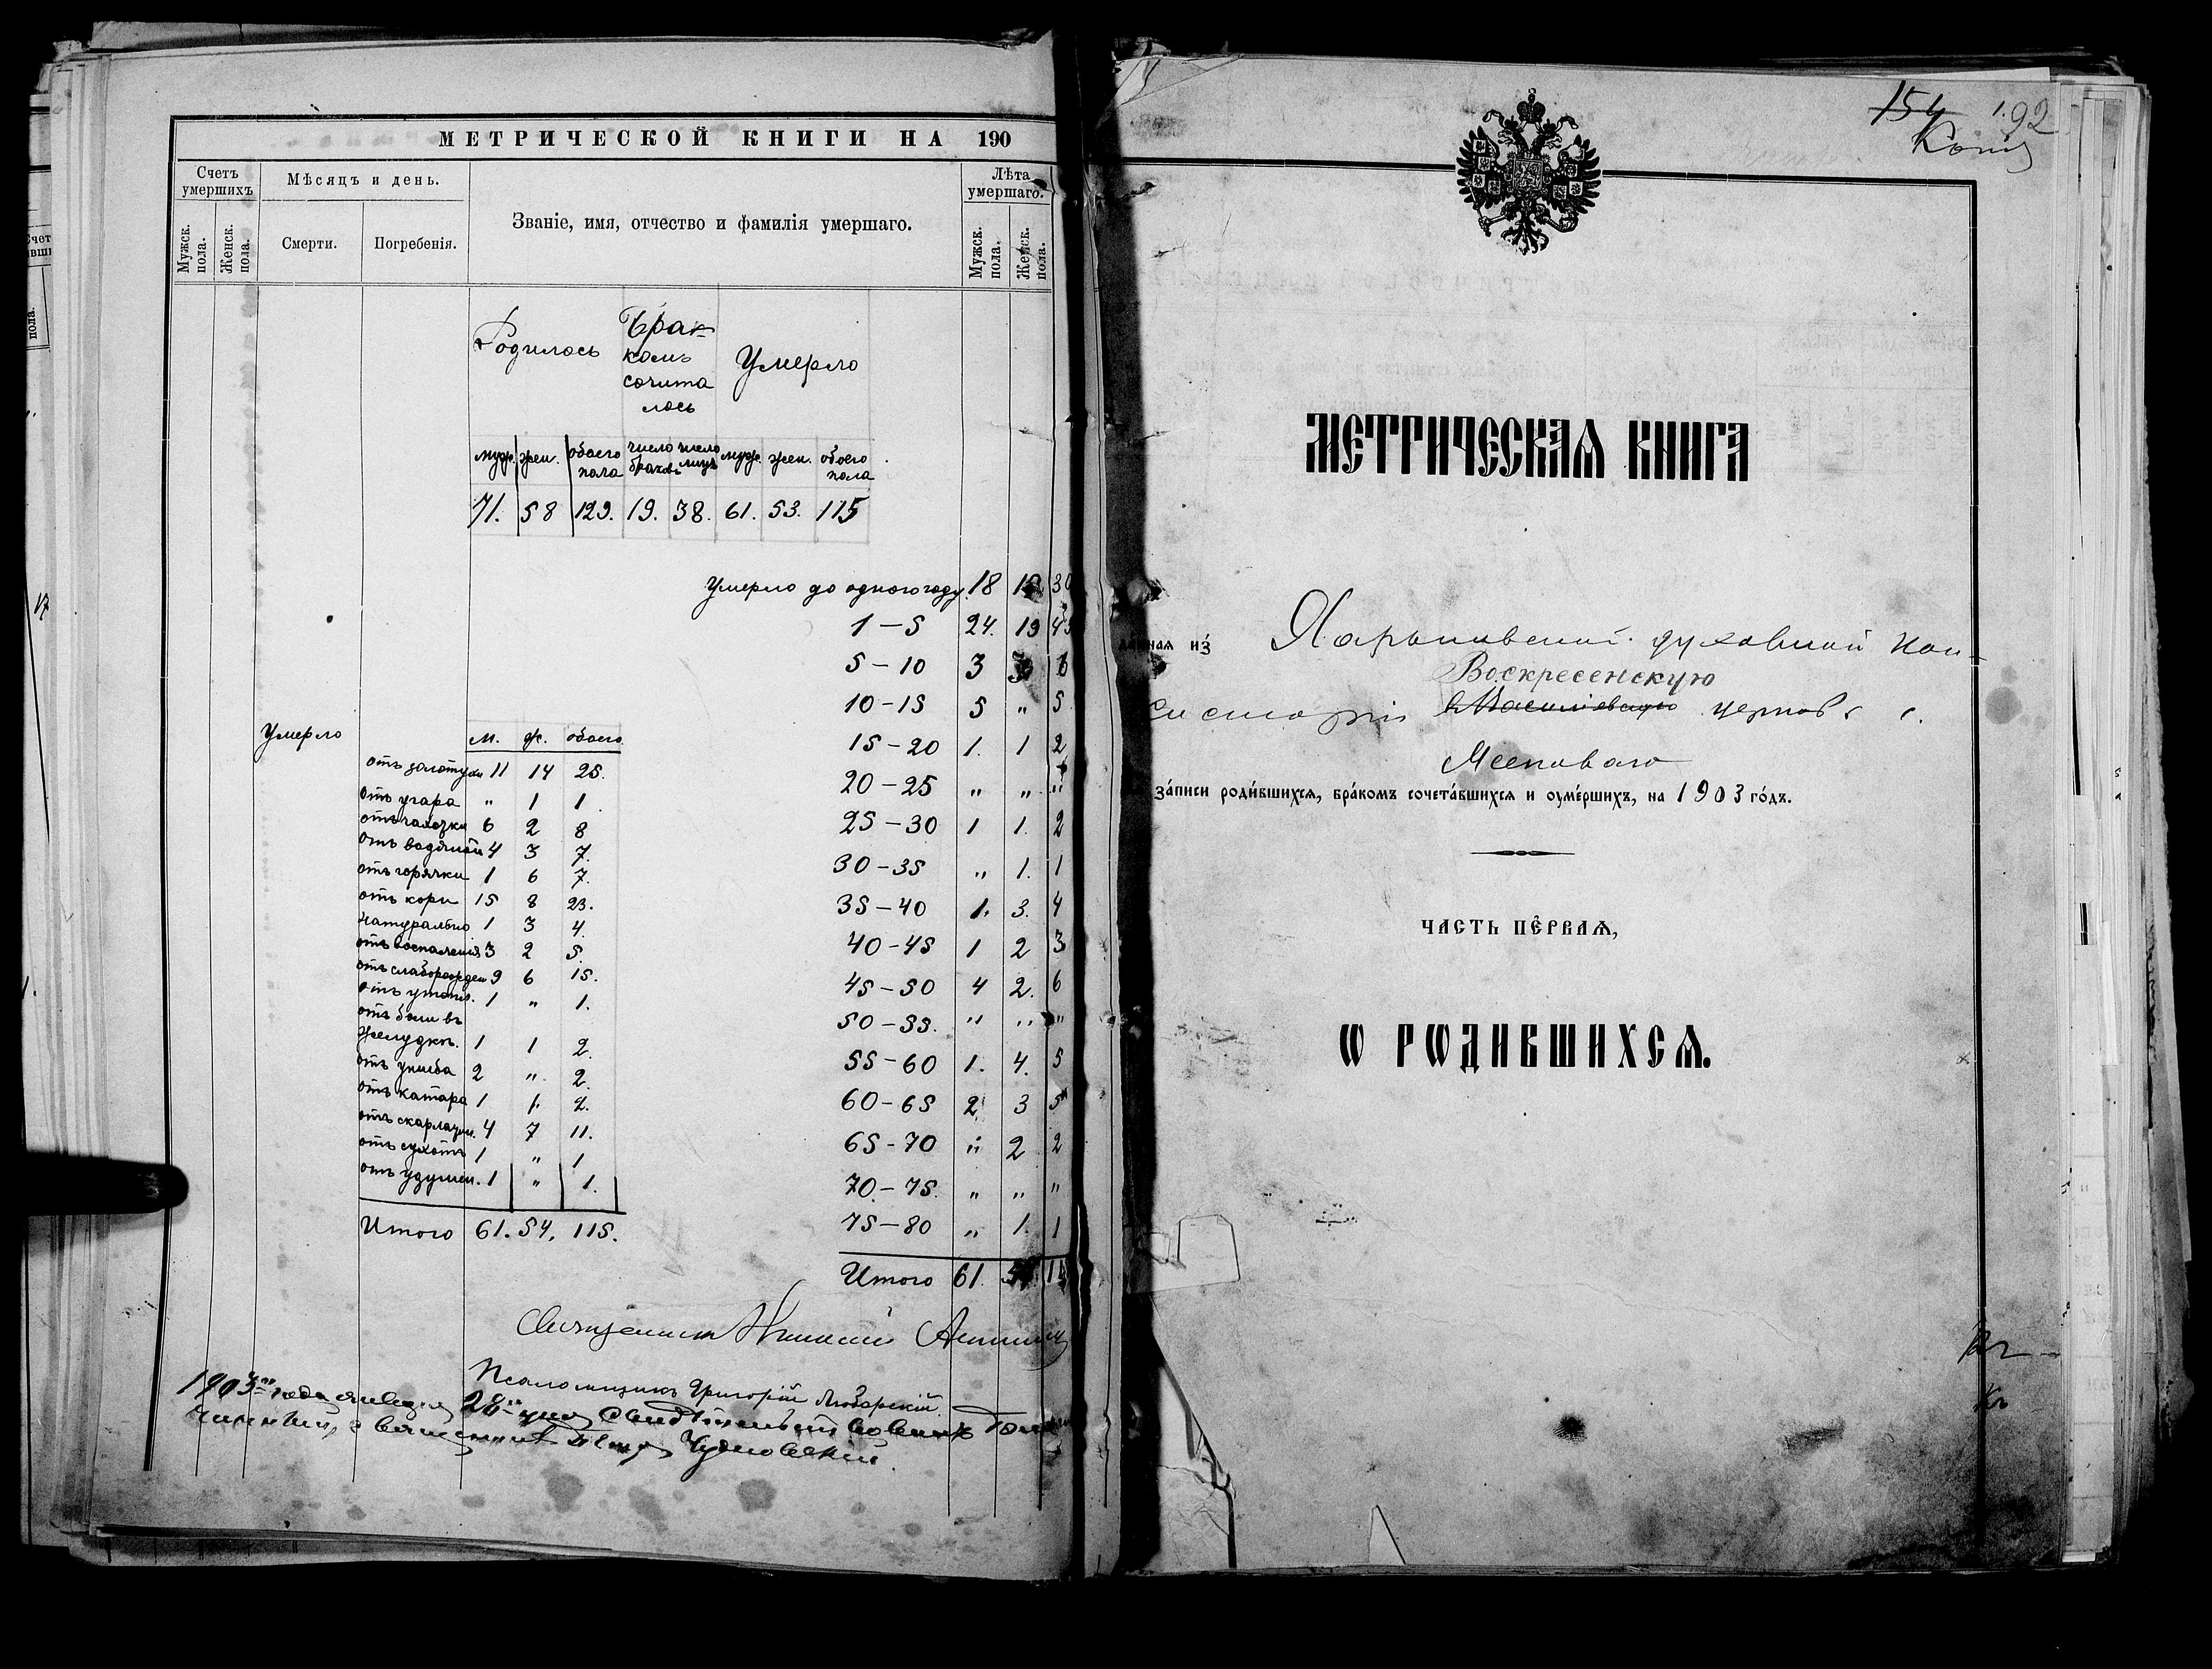 МЕТРИЧЕСКОЙ КНИГИ НА 190
Счетъ умершихъ
Мѣсяцъ и день.
Званіе, имя, отчество и фамилія умершаго.
Лѣта умершаго.
Мужск. пола.
Женск. пола.
Смерти.
Погребенія.
Мужск. пола.
Женск. пола.
Родилось
Бракомъ сочиталось
Умерло
муж. жен. обоего пола число браковъ число лицъ муж. жен. обоего пола
71. 58 129. 19. 38. 61. 53. 115
Умерло до одного году 18 30
1 — 5 24. 19 43
5 — 10 3 3 6
10 — 15 5 " 5
15 — 20 1. 1 2
20 — 25 " " "
25 — 30 1 1. 2
30 — 35 " 1. 1
35 — 40 1. 3. 4
40 — 45 1 2 3
45 — 50 4 2. 6
50 — 55. " " "
55 — 60 1. 4. 5
60 — 65 2 3 5
65 — 70 " 2 2
70. — 75. " " "
75 — 80 " 1. 1
Итого 61.
Умерло
м. ж. обоего.
отъ золотухи 11 14 25.
отъ угара " 1 1.
отъ чахотки 6 2 8
отъ водяной 4 3 7.
отъ горячки 1 6 7.
отъ кори 15 8 23.
натурально 1 3 4.
отъ воспаленія 3 2 5.
отъ слаборожден 9 6 15.
отъ утопл. 1 " 1.
отъ боли въ
желудкѣ. 1 1 2.
отъ ушиба 2 " 2.
отъ катара 1 1. 2.
отъ скарлатин. 4 7 11.
отъ сухотъ 1 " 1
отъ удушен. 1 " 1.
Итого 61. 54. 115.
Священникъ
Псаломщикъ Григорій Любарскій
года января 28 дня
священникъ Чудновскій.
154 192
Копія
МЕТРИЧЕСКАЯ КНИГА
данная из Харьковской духовной кон-
Воскресенскую
систоріи въ Василіевскую церковь с.
записи родившихся, бракомъ сочетавшихся и оумершихъ, на 1903 годъ.
ЧАСТЬ ПЕРВАЯ,
Ѡ РѠДИВШИХСЯ.